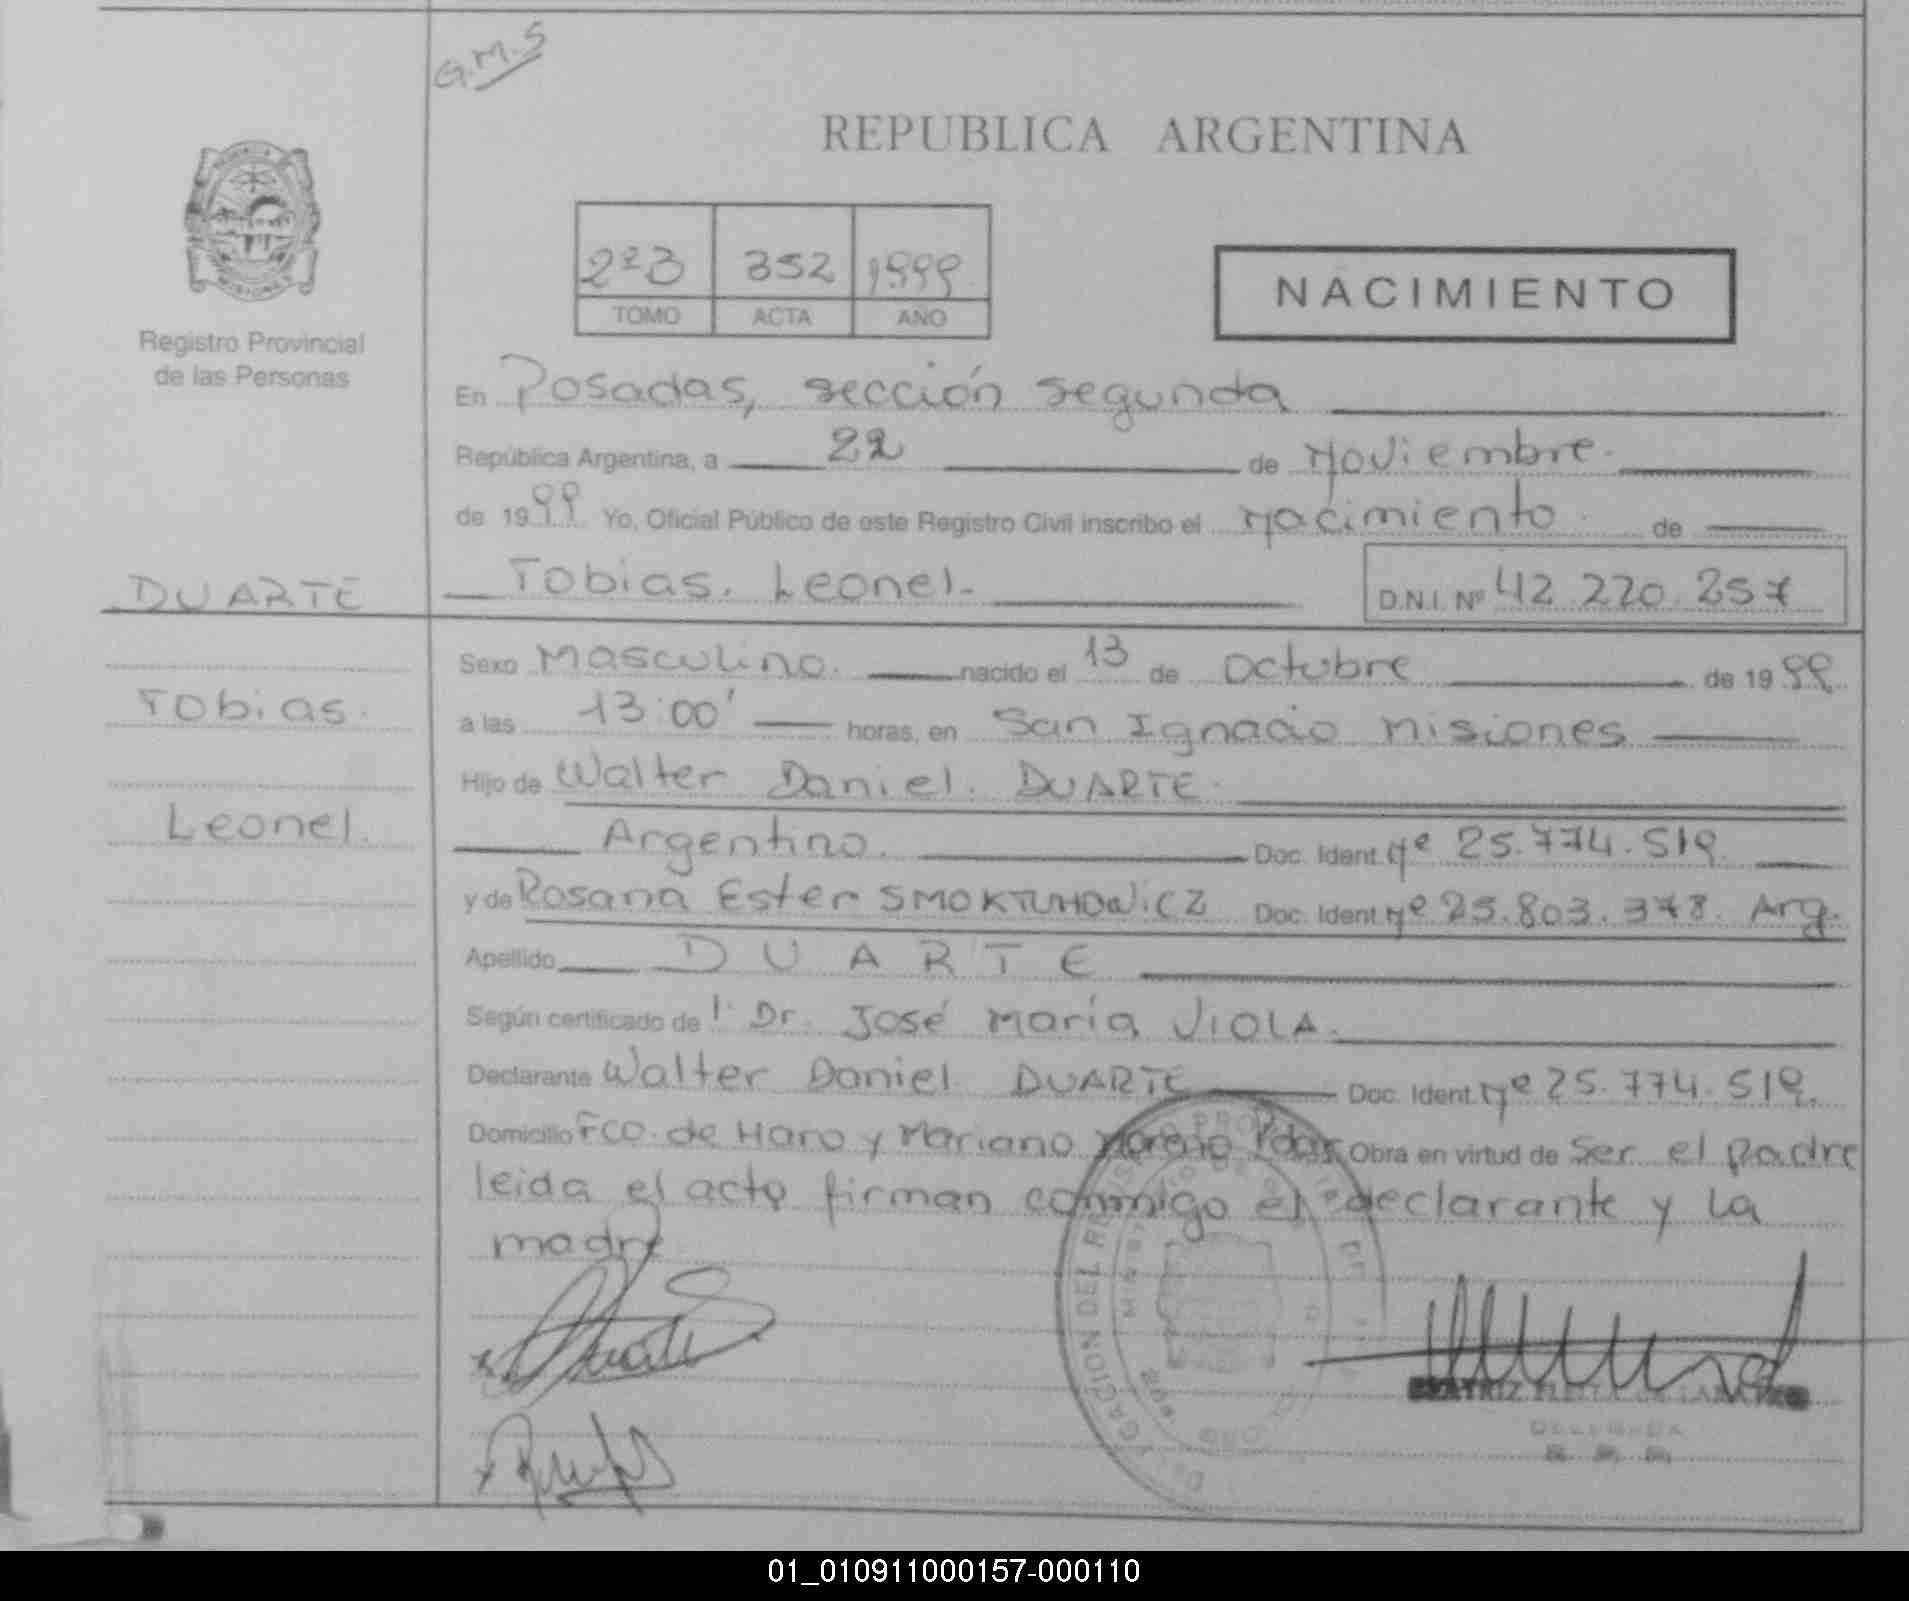 G.M.S
REPUBLICA ARGENTINA
2º3 352 1999
TOMO ACTA AÑO
NACIMIENTO
Registro Provincial
de las Personas
En Posadas, sección segunda
República Argentina, a 22 de Noviembre.
de 1999 Yo, Oficial Público de este Registro Civil inscribo el Nacimiento de
DUARTE
Tobias. Leonel.
D.N.I. Nº 42.220.257
Sexo Masculino. nacido el 13 de Octubre de 1999
Tobias.
a las 13:00' horas, en San Ignacio Misiones
Hijo de Walter Daniel. DUARTE.
Leonel.
Argentino. Doc. Ident. Nº 25.774.519
y de Rosana Ester SMOKTUNOWICZ Doc. Ident. Nº 25.803.378. Arg.
Apellido DUARTE
Según certificado de l. Dr. José María VIOLA.
Declarante Walter Daniel DUARTE Doc. Ident. Nº 25.774.519.
Domicilio Fco. de Haro y Mariano Moreno Pdas. Obra en virtud de Ser el padre
leida el acta firman conmigo el declarante y la
madre
DELEGADA
01_010911000157-000110